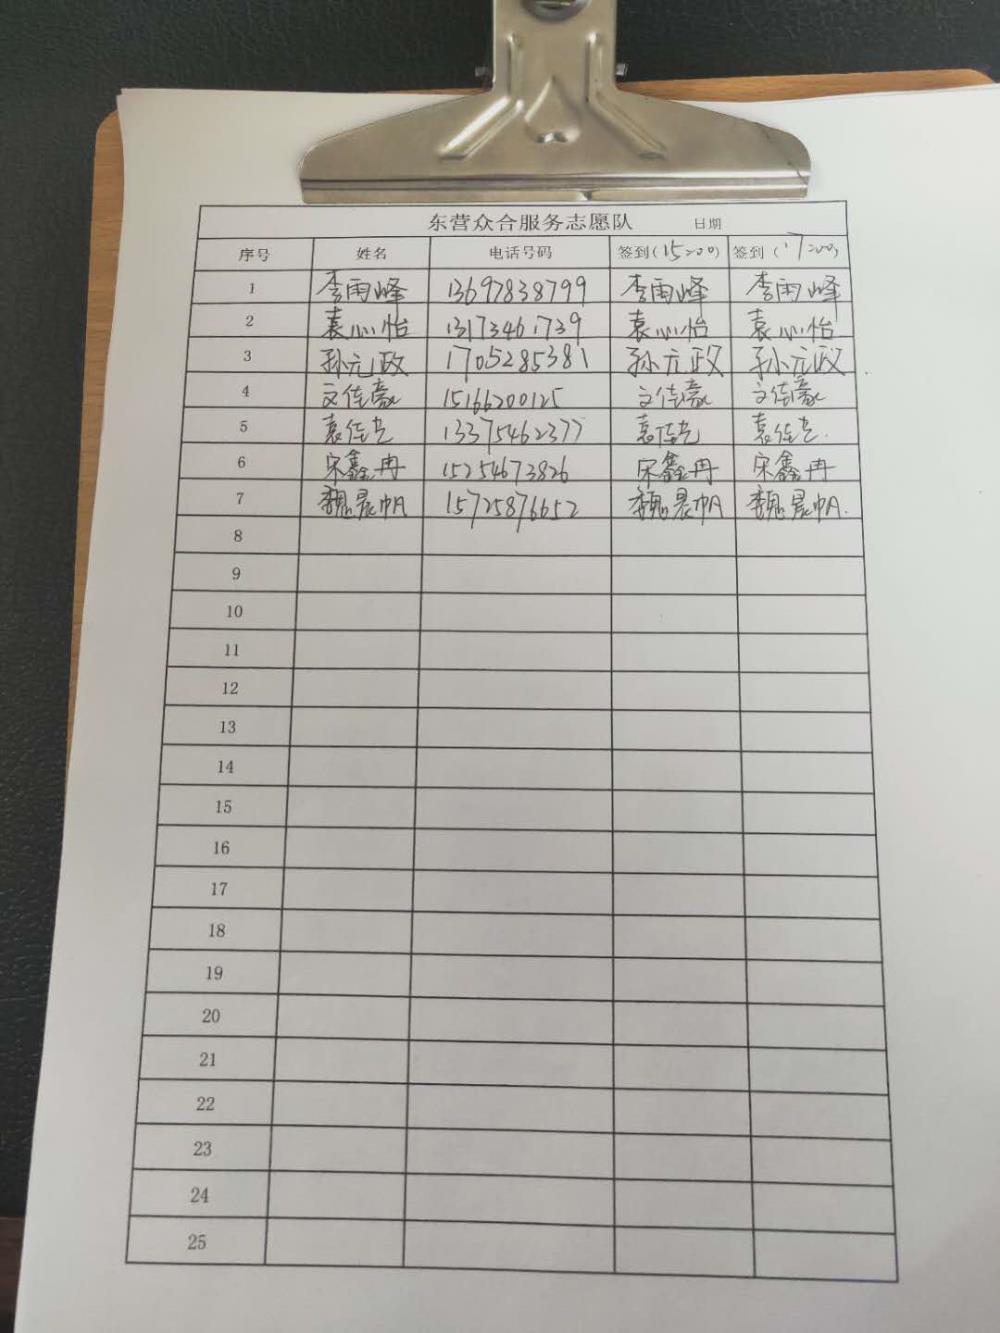 东营众合服务志愿队 日期
序号 姓名 电话号码 签到(15:00) 签到(17:00)
1 李雨峰 13697838799 李雨峰 李雨峰
2 袁心怡 13173461739 袁心怡 袁心怡
3 孙元政 1705285381 孙元政 孙元政
4 文佳豪 15166200125 文佳豪 文佳豪
5 袁佳艺 13375462377 袁佳艺 袁佳艺
6 宋鑫冉 15254673826 宋鑫冉 宋鑫冉
7 魏晨帆 15725876652 魏晨帆 魏晨帆
8
9
10
11
12
13
14
15
16
17
18
19
20
21
22
23
24
25